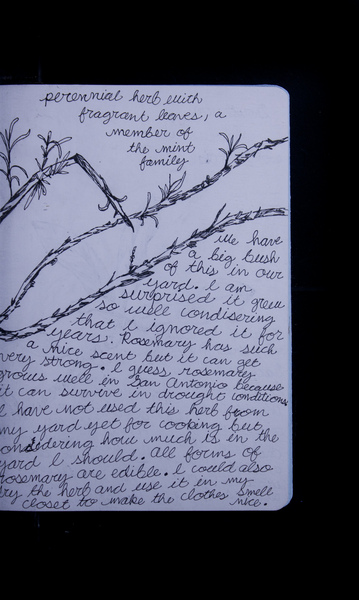 perennial herb with
fragrant leaves, a
member of
the mint
family
We have
a big bush
of this in our
yard. I am
surprised it grew
so well condisering
that I ignored it for
years. Rosemary has such
a nice scent but it can get
very strong. I guess rosemary
grows well in San Antonio because
it can survive in drought conditions
I have not used this herb from
my yard yet for cooking but
considering how much is in the
yard I should. All forms of
rosemary are edible. I could also
dry the herb and use it in my
closet to make the clothes smell
nice.